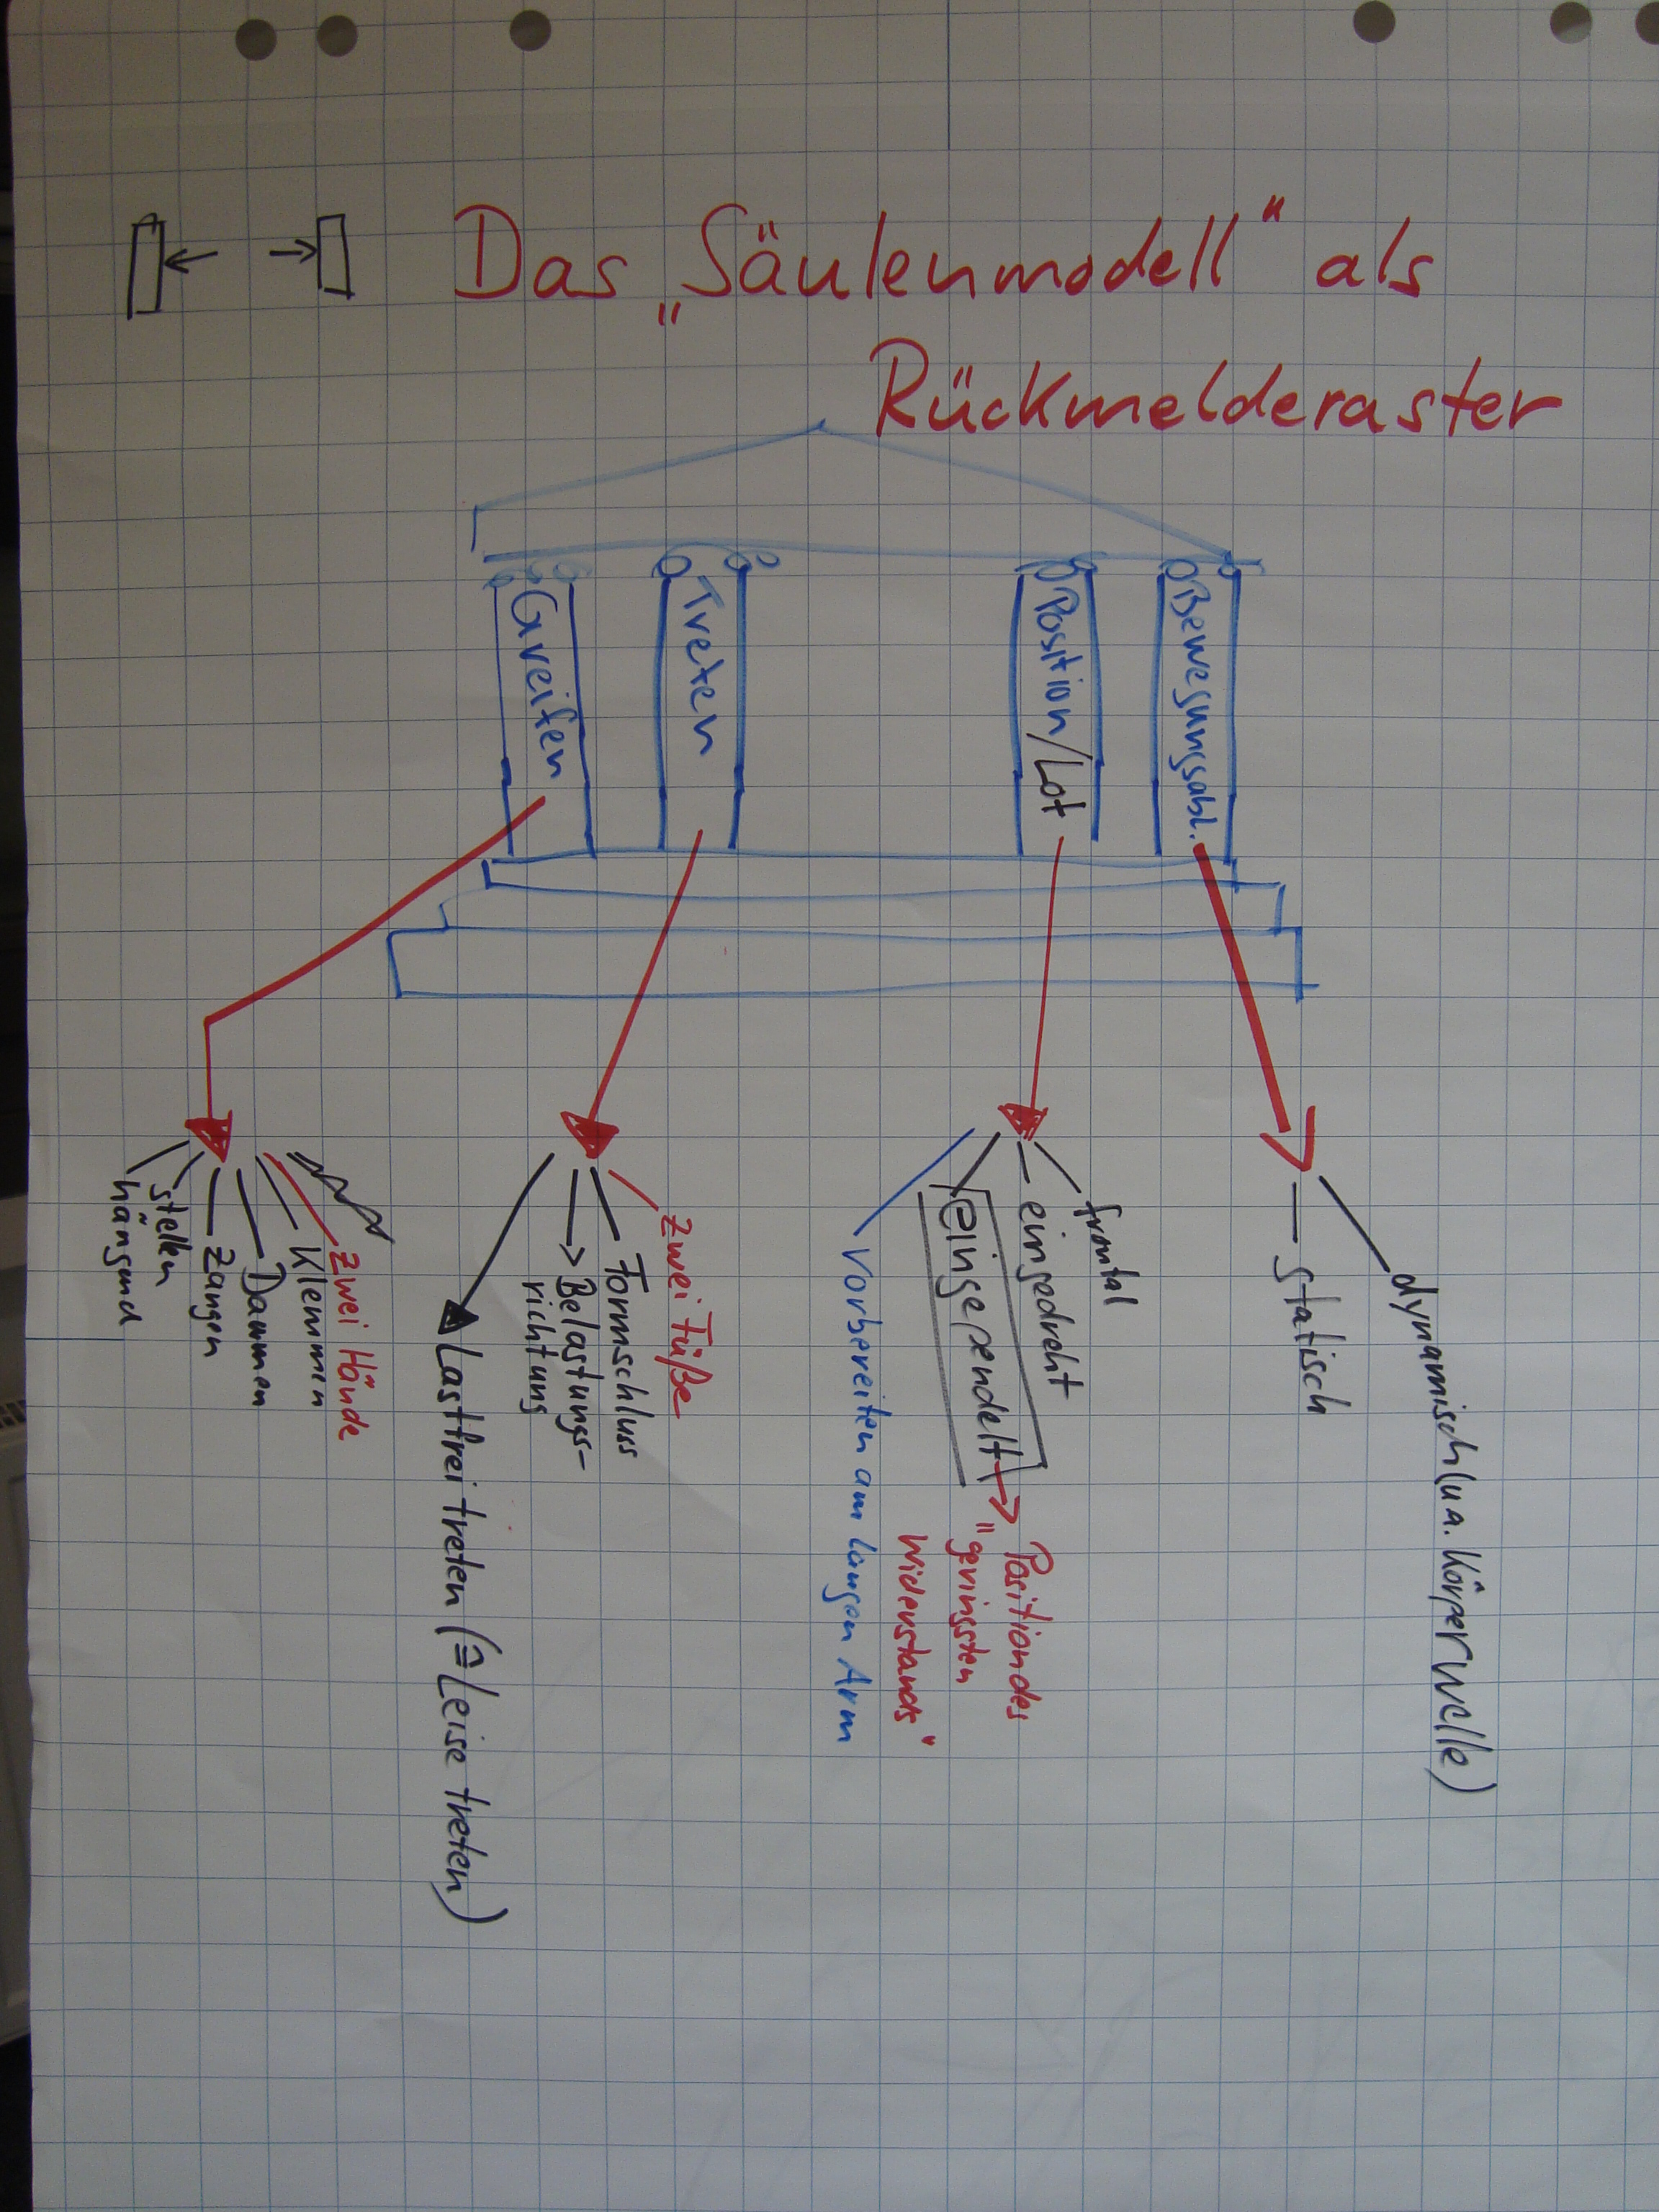 Das „Säulenmodell" als
Rückmelderaster
Greifen
Treten
Position/Lot
Bewegungsabl.
hängend
stellen
Zangen
Daumen
Klemmen
zwei Hände
Lastfrei treten (≙ Leise treten)
Belastungs-
richtung
Formschluss
zwei Füße
Vorbereiten am langen Arm
eingependelt
Position des
"geringsten
Widerstands"
eingedreht
frontal
statisch
dynamisch (u.a. Körperwelle)